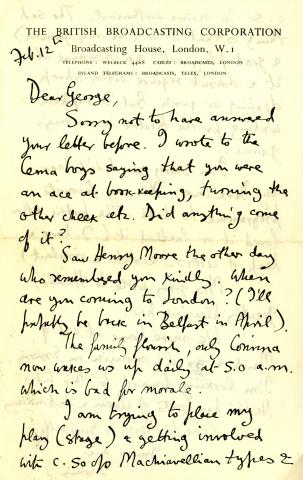 THE BRITISH BROADCASTING CORPORATION
Broadcasting House, London, W.1
TELEPHONE : WELBECK 4468 CABLES : BROADCASTS, LONDON
INLAND TELEGRAMS : BROADCASTS, TELEX, LONDON
Feb. 12th
Dear George,
Sorry not to have answered
your letter before. I wrote to the
Cema boys saying that you were
an ace at book-keeping, turning the
other cheek etc. Did anything come
of it?
Saw Henry Moore the other day
who remembered you kindly. When
are you coming to London? (I'll
probably be back in Belfast in April).
The family flourish, only Corinna
now wakes us up daily at 5.0 a.m.
which is bad for morale.
I am trying to place my
play (stage) & getting involved
with c. 50 o/o Machiavellian types &